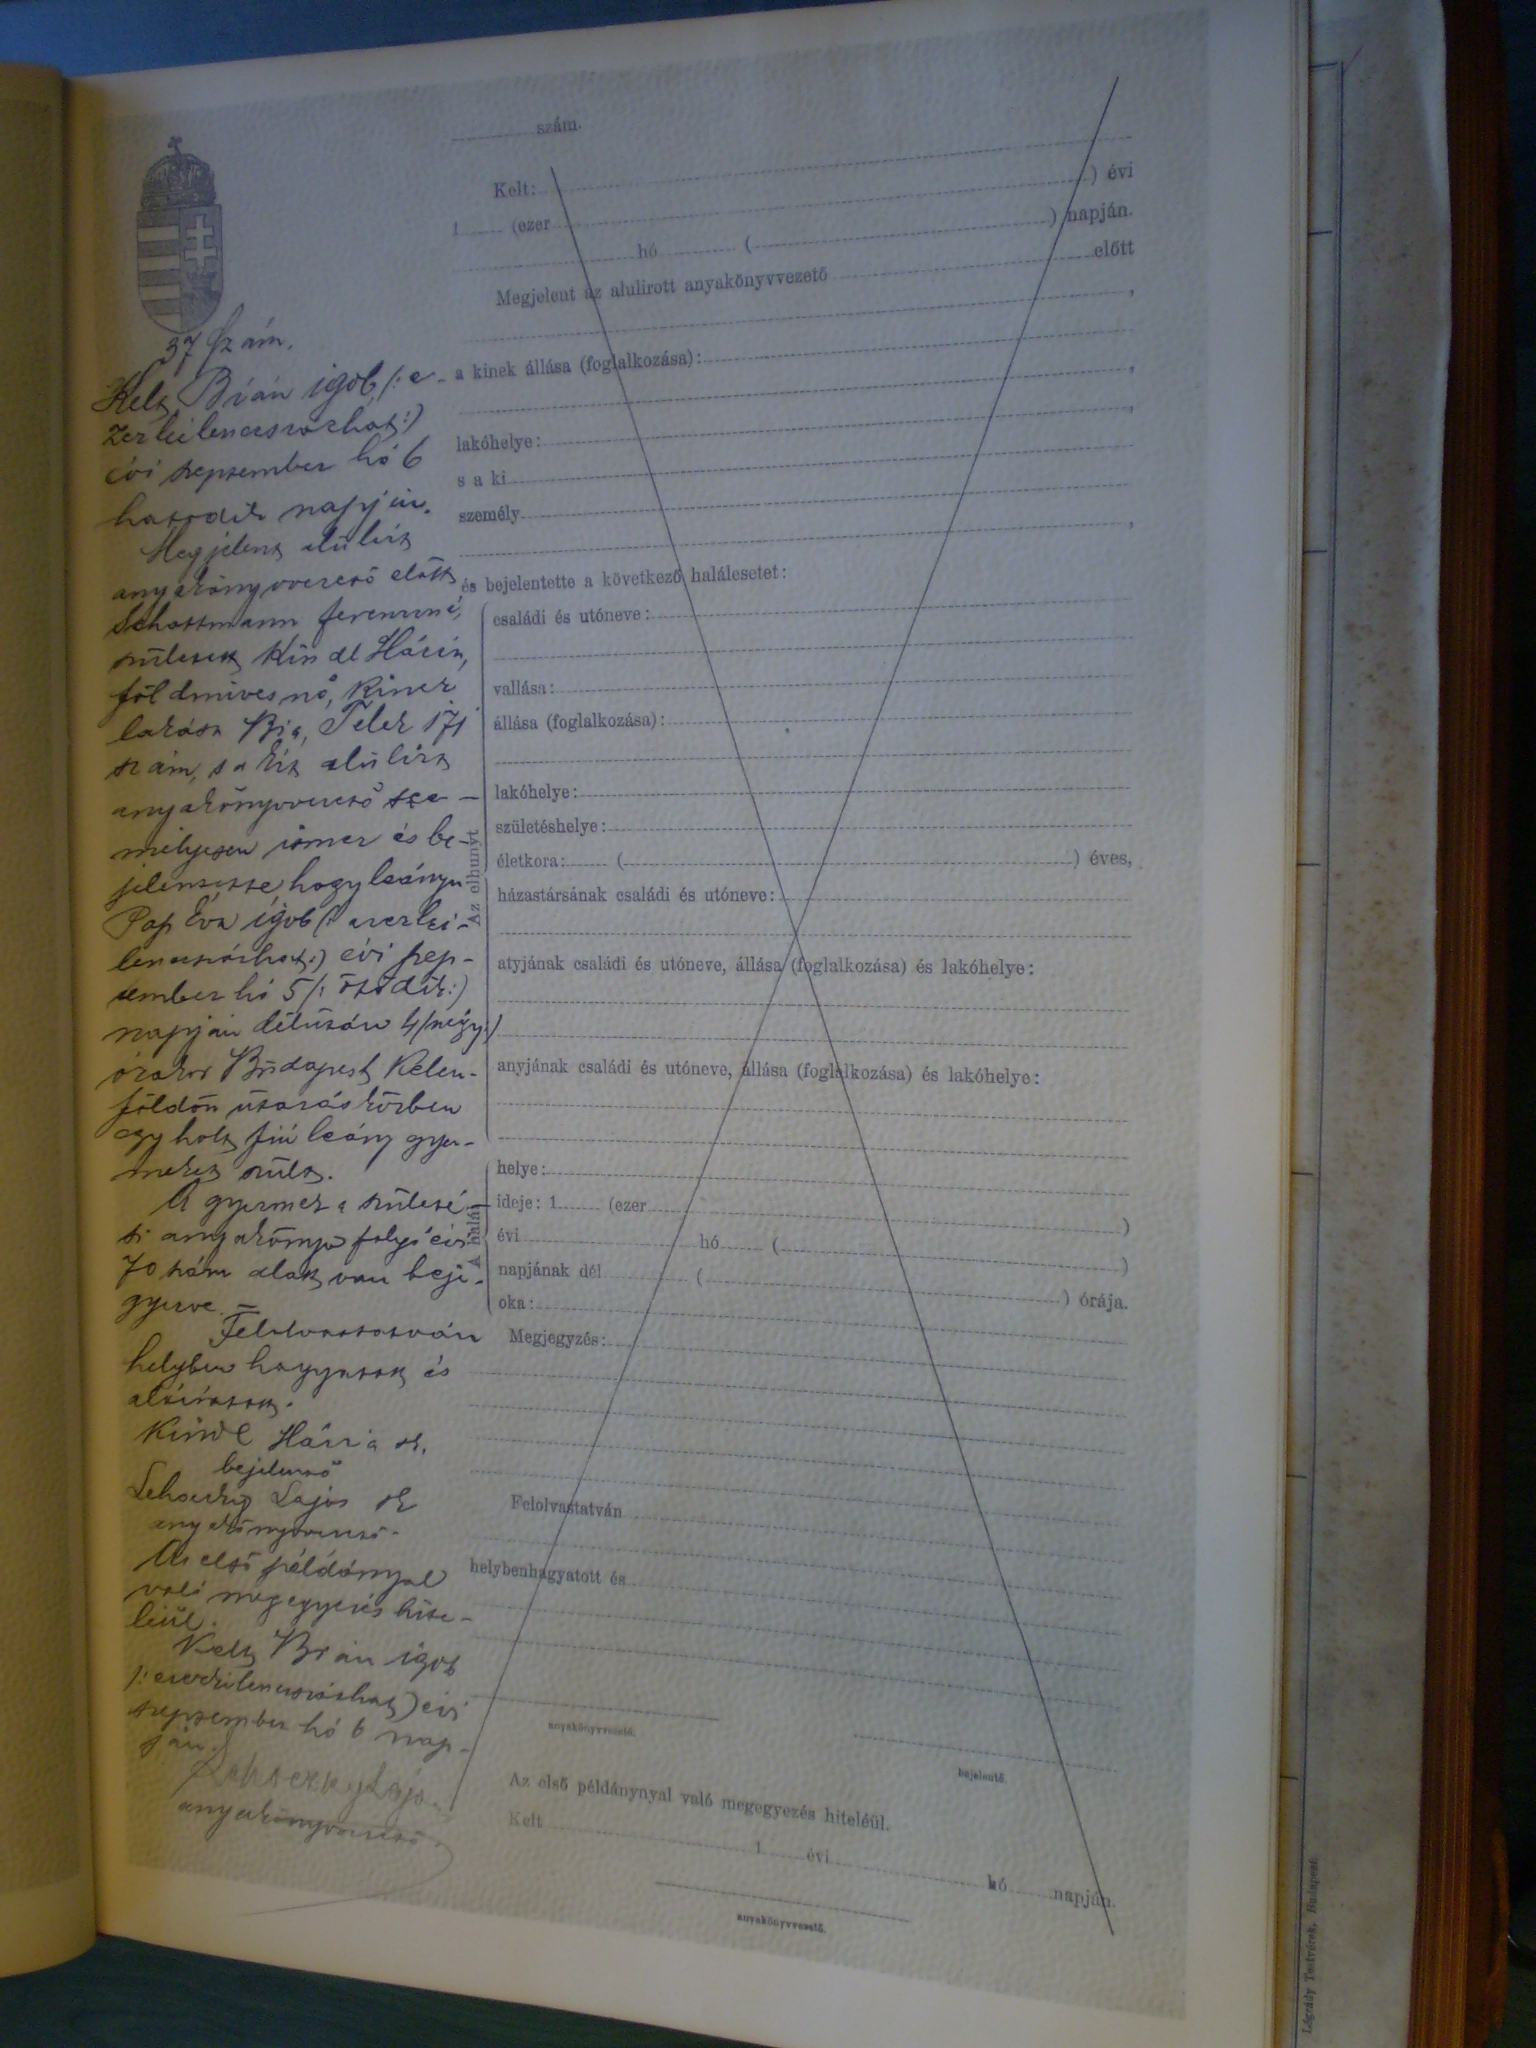 szám.
Kelt:
) évi
1 (ezer
) napján.
hó (
Megjelent az alulirott anyakönyvvezető
előtt
,
a kinek állása (foglalkozása):
,
lakóhelye:
,
s a ki
személy
,
és bejelentette a következő halálesetet:
Az elhunyt
családi és utóneve:
vallása:
állása (foglalkozása):
lakóhelye:
születéshelye:
életkora: ( ) éves,
házastársának családi és utóneve:
atyjának családi és utóneve, állása (foglalkozása) és lakóhelye:
anyjának családi és utóneve, állása (foglalkozása) és lakóhelye:
A halál
helye:
ideje: 1 (ezer )
évi hó ( )
napjának dél ( ) órája.
oka:
Megjegyzés:
Felolvastatván
helybenhagyatott és
anyakönyvvezető.
bejelentő.
Az első példánynyal való megegyezés hiteléül.
Kelt 1 évi hó napján.
anyakönyvvezető.
37 szám.
Kelt Bián 1906 /: e-
zerkilencszázhat :/
évi szeptember hó 6
hatodik napján.
Megjelent alulirt
anyakönyvvezető előtt
Schattmann Ferencné,
született Kindl Mária,
földmivesnő, kinek
lakása Bia, Telek 171
szám, s a kit alulirt
anyakönyvvezető sze-
mélyesen ismer és be-
jelentette hogy leánya
Pap Éva 1906 /: ezerki-
lencszázhat :/ évi szep-
tember hó 5 /: ötödik :/
napján délután 4 /: négy :/
órakor Budapest Kelen-
földön utazás közben
egy holt fiú leány gyer-
meket szült.
A gyermek a születé-
si anyakönyv folyó évi
70 szám alatt van beje-
gyezve. –
Felolvastatván
helyben hagyatott és
aláiratott.
Kindl Mária sk.
bejelentő
Lajos sk
anyakönyvvezető.
Az első példánnyal
való megegyezés hite-
léül.
Kelt Bián 1906
/: ezerkilencszázhat :/ évi
szeptember hó 6 nap-
ján.
Lajos
anyakönyvvezető.
Légrády Testvérek, Budapest.